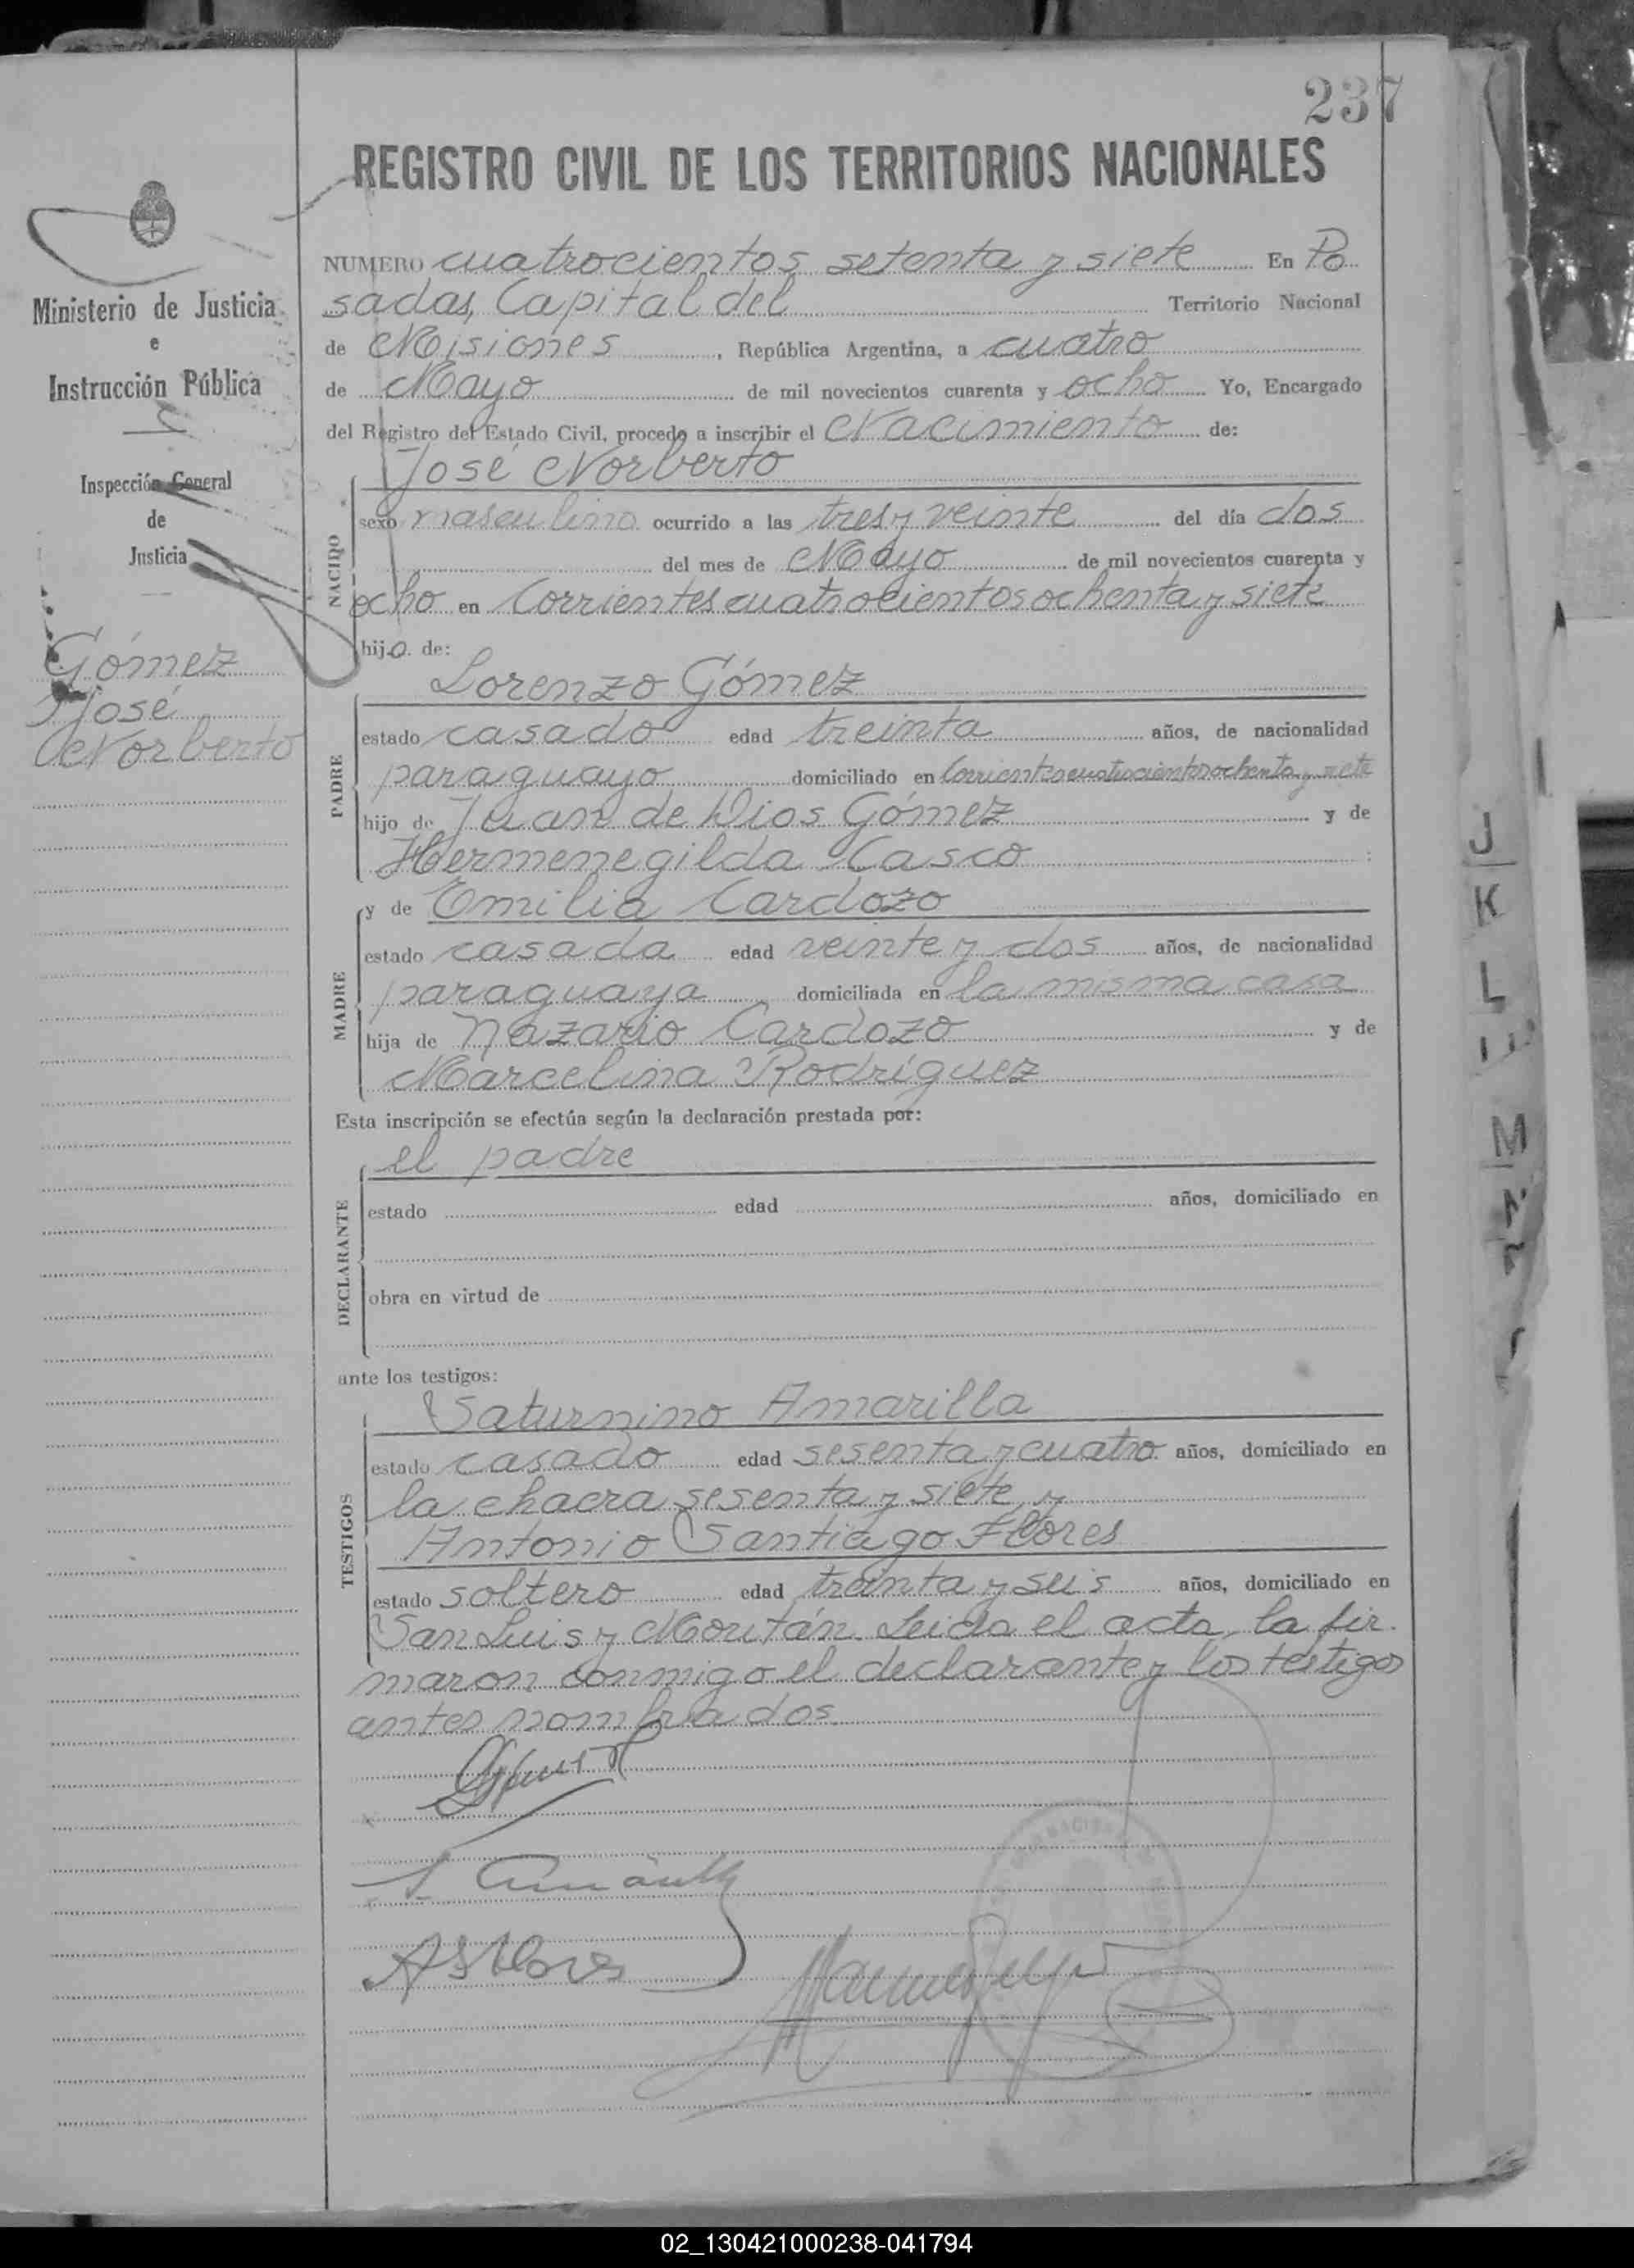 237
REGISTRO CIVIL DE LOS TERRITORIOS NACIONALES
Ministerio de Justicia
e
Instrucción Pública
Inspección General
de
Justicia
Gómez
José
Norberto
NUMERO cuatrocientos setenta y siete En Po
sadas, Capital del Territorio Nacional
de Misiones, República Argentina, a cuatro
de Mayo de mil novecientos cuarenta y ocho Yo, Encargado
del Registro del Estado Civil, procedo a inscribir el Nacimiento de:
José Norberto
NACIDO
sexo masculino ocurrido a las tres y veinte del día dos
del mes de Mayo de mil novecientos cuarenta y
ocho en Corrientes cuatrocientos ochenta y siete
hijo. de:
Lorenzo Gómez
PADRE
estado casado edad treinta años, de nacionalidad
paraguayo domiciliado en Corrientes cuatrocientos ochenta y siete
hijo de Juan de Dios Gómez y de
Hermenegilda Casco
y de Emilia Cardozo
MADRE
estado casada edad veinte y dos años, de nacionalidad
paraguaya domiciliada en la misma casa
hija de Nazario Cardozo y de
Marcelina Rodríguez
Esta inscripción se efectúa según la declaración prestada por:
el padre
DECLARANTE
estado edad años, domiciliado en
obra en virtud de
ante los testigos:
Saturnino Amarilla
TESTIGOS
estado casado edad sesenta y cuatro años, domiciliado en
la chacra sesenta y siete y
Antonio Santiago Flores
estado soltero edad treinta y seis años, domiciliado en
San Luis y Moritán. Leida el acta, la fir
maron conmigo el declarante y los testigos
antes nombrados
A S Flores
J
K
L
M
N
02_130421000238-041794